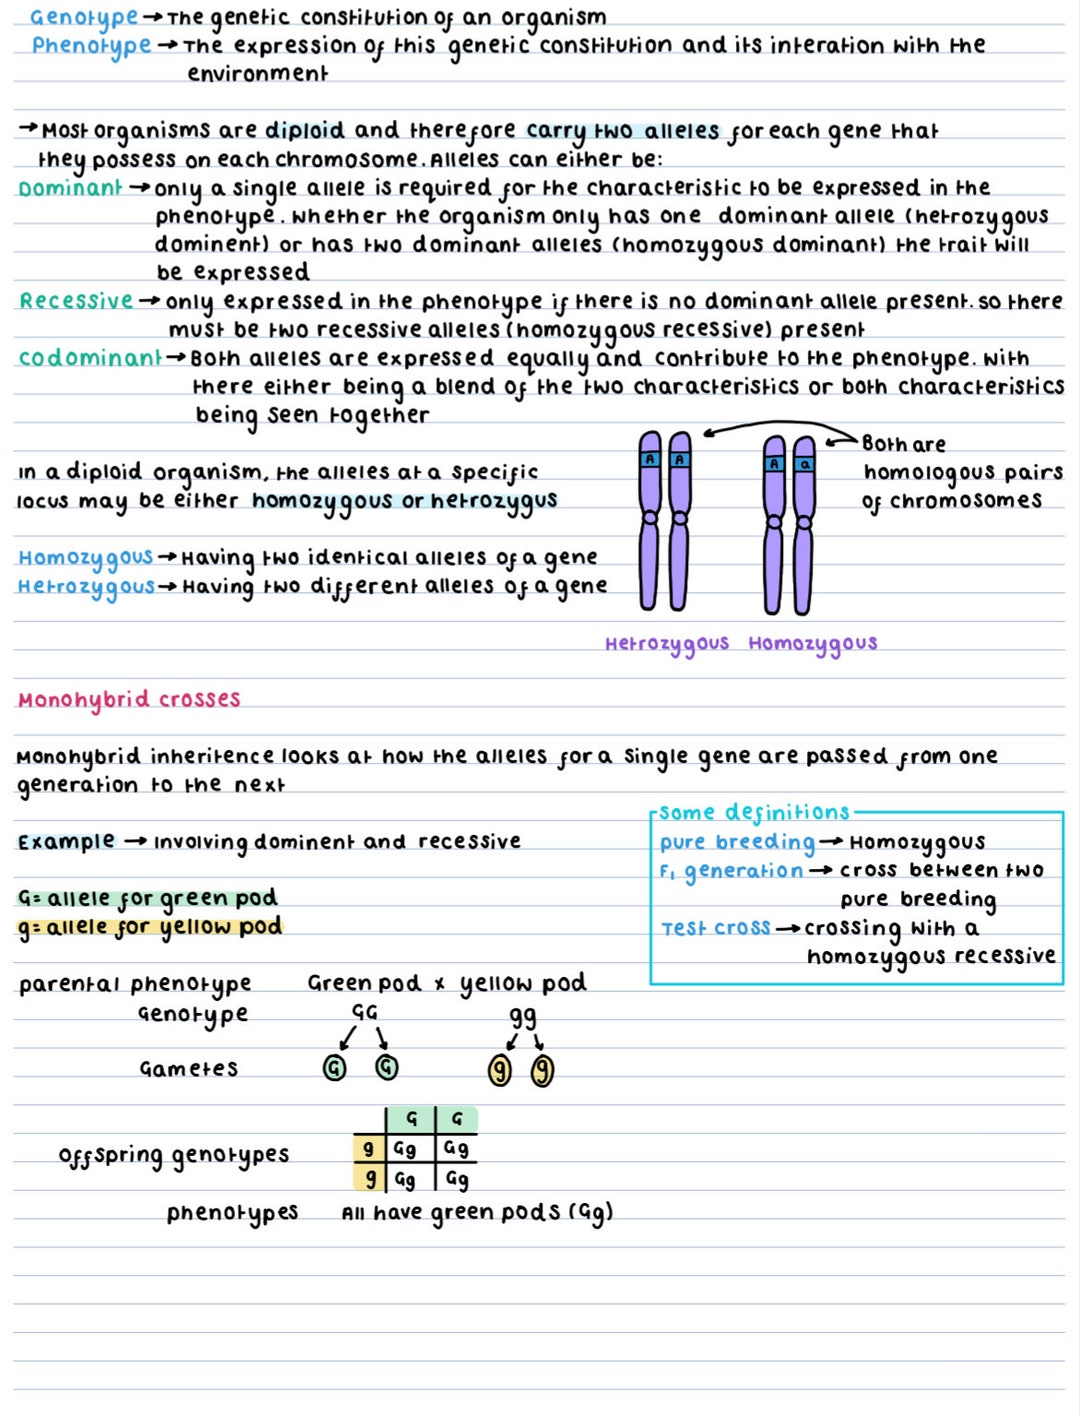 Genotype → The genetic constitution of an organism
Phenotype → The expression of this genetic constitution and its interation with the
environment
→ Most organisms are diploid and therefore carry two alleles for each gene that
they possess on each chromosome. Alleles can either be:
Dominant → only a single allele is required for the characteristic to be expressed in the
phenotype. Whether the organism only has one dominant allele (hetrozygous
dominent) or has two dominant alleles (homozygous dominant) the trait will
be expressed
Recessive → only expressed in the phenotype if there is no dominant allele present. so there
must be two recessive alleles (homozygous recessive) present
codominant → Both alleles are expressed equally and contribute to the phenotype. With
there either being a blend of the two characteristics or both characteristics
being seen together
In a diploid organism, the alleles at a specific
locus may be either homozygous or hetrozygus
Homozygous → Having two identical alleles of a gene
Hetrozygous → Having two different alleles of a gene
A A A a
Both are
homologous pairs
of chromosomes
Hetrozygous Homozygous
Monohybrid crosses
Monohybrid inheritence looks at how the alleles for a single gene are passed from one
generation to the next
Example → Involving dominent and recessive
G = allele for green pod
g = allele for yellow pod
some definitions
pure breeding → Homozygous
F₁ generation → cross between two
pure breeding
Test cross → crossing with a
homozygous recessive
parental phenotype Green pod x yellow pod
Genotype GG gg
Gametes G G g g
G G
g Gg Gg
offspring genotypes
g Gg Gg
phenotypes All have green pods (Gg)